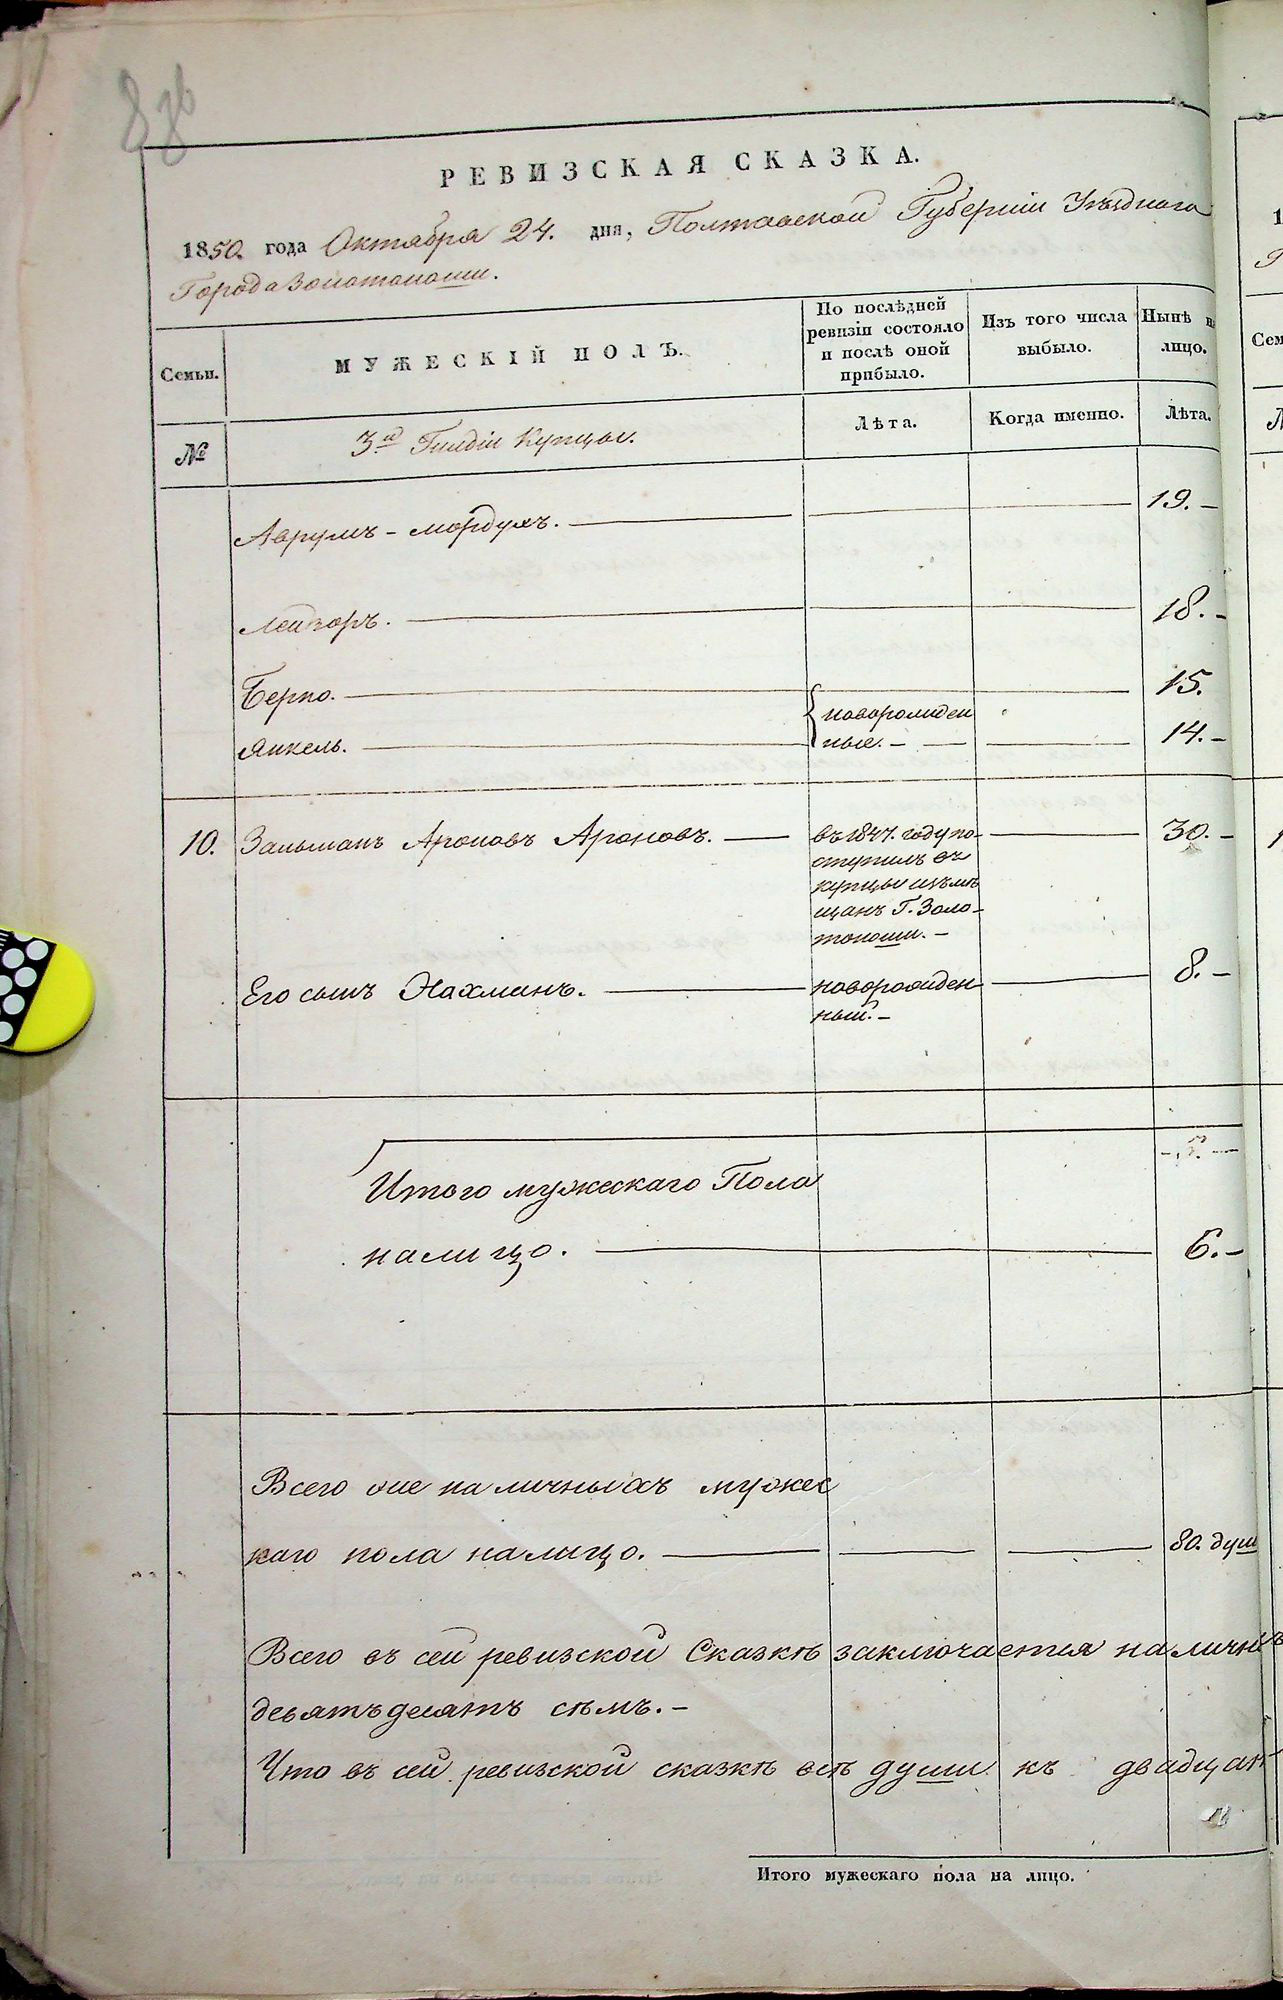 88
РЕВИЗСКАЯ СКАЗКА.
1850. года Октября 24. дня, Полтавской Губерніи Уѣзднаго
Города Золотоноши.
Семьи.
МУЖЕСКІЙ ПОЛЪ.
По послѣдней
ревизіи состояло
и послѣ оной
прибыло.
Изъ того числа
выбыло.
Нынѣ на
лицо.
№
3й Гильдіи Купцы.
Лѣта.
Когда именно.
Лѣта.
Аврумъ-мордухъ. 19.
Лейзоръ. 18.
Берко. 15.
новорожден
Янкель. ные. 14.
10. Зальманъ Ароновъ Ароновъ. въ 1847. году по- 30.
ступилъ въ
купцы изъ мѣ
щанъ Г. Золо-
тоноши.
Его сынъ Нахманъ. новорожден 8.
ный.
Итого мужескаго Пола
налицо. 6.
Всего же наличныхъ мужес
каго пола налицо. 80. душ
Всего въ сей ревизской Сказкѣ заключается наличн
девятьдесятъ сѣмъ.
Что въ сей ревизской сказкѣ всѣ души къ двадцат
Итого мужескаго пола на лицо.